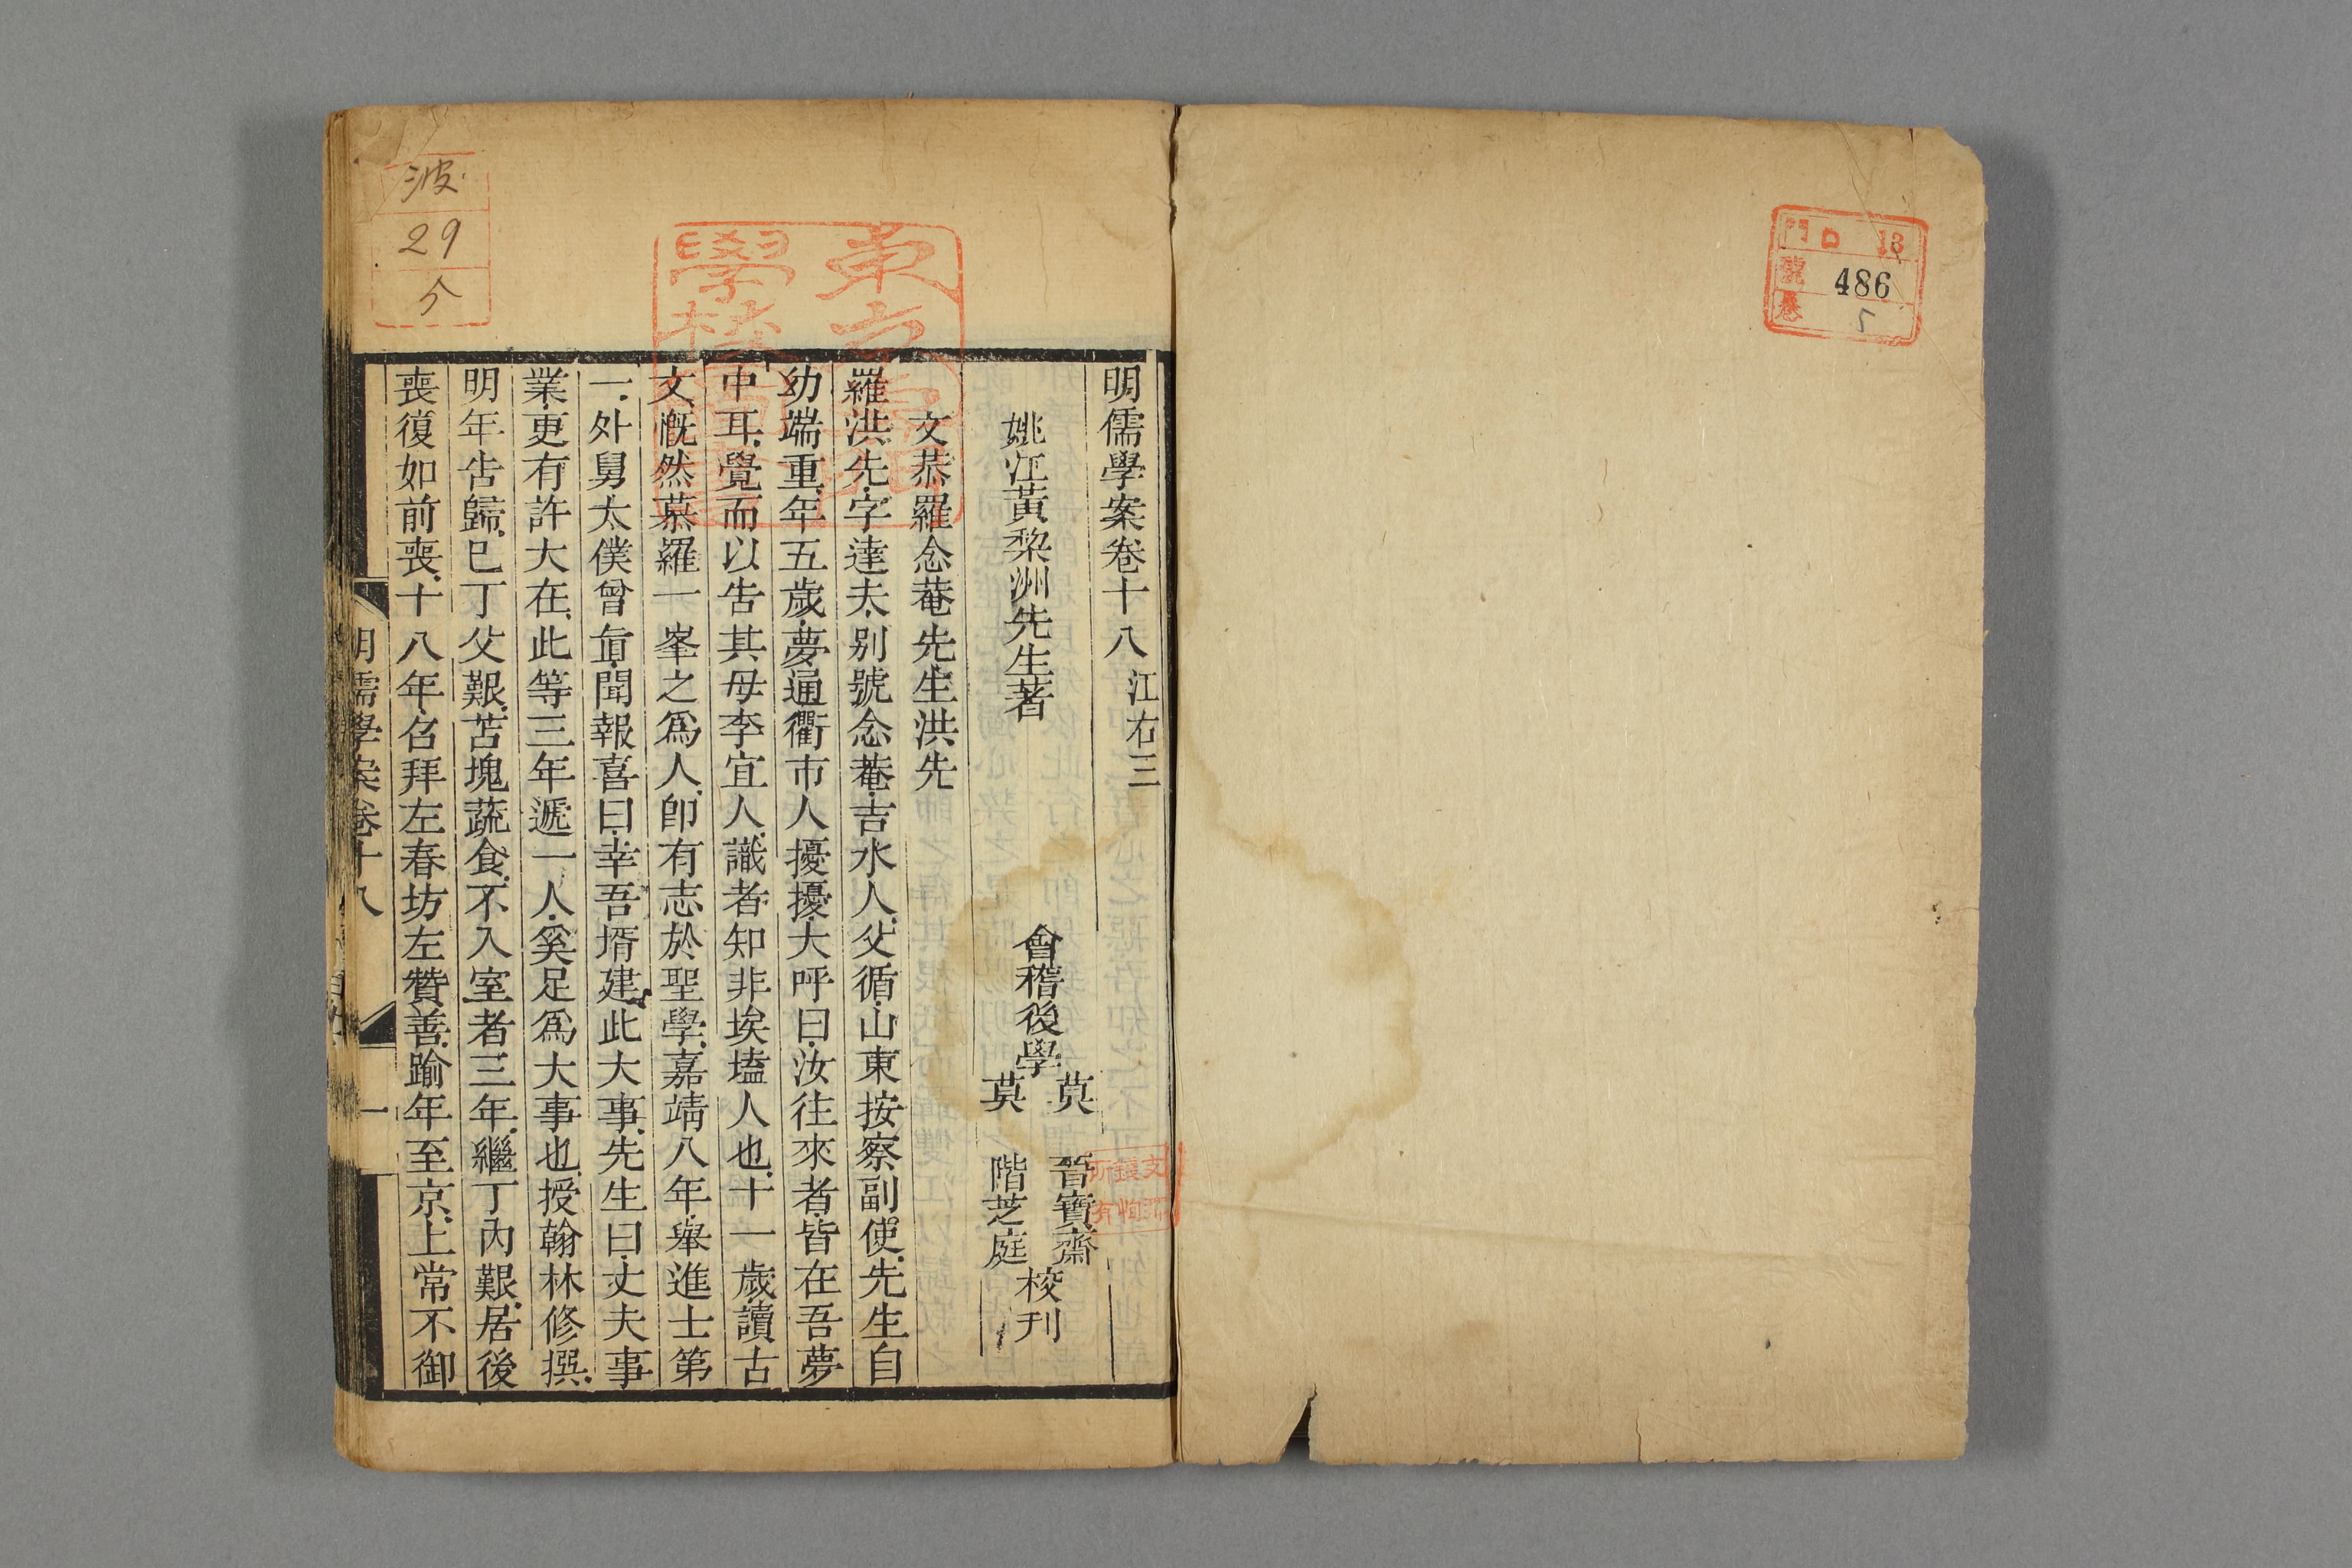 門 口 13
號 486
卷 5
明儒學案卷十八 江右三
姚江黃棃洲先生著
會稽後學
莫 晉寶齋
莫 階芝庭
校刊
文恭羅念菴先生洪先
羅洪先字達夫別號念菴吉水人父循山東按察副使先生自
幼端重年五歲夢通衢市人擾擾大呼曰汝往來者皆在吾夢
中耳覺而以告其母李宜人識者知非埃壒人也十一歲讀古
文慨然慕羅一峯之爲人卽有志於聖學嘉靖八年舉進士第
一外舅太僕曾直聞報喜曰幸吾壻建此大事先生曰丈夫事
業更有許大在此等三年遞一人奚足爲大事也授翰林修撰
明年告歸已丁父艱苫塊蔬食不入室者三年繼丁內艱居後
喪復如前喪十八年召拜左春坊左贊善踰年至京上常不御
明儒學案卷十八
一
波
29
5